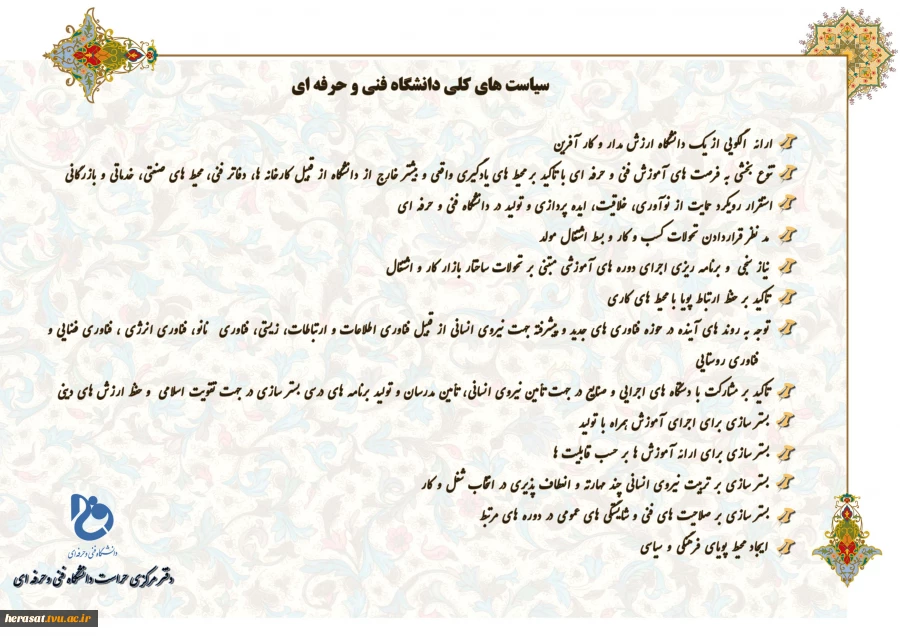 سیاست های کلی دانشگاه فنی و حرفه ای
ارائه الگویی از یک دانشگاه ارزش مدار و کار آفرین
تنوع بخشی به فرصت های آموزش فنی و حرفه ای با تاکید بر محیط های یادگیری واقعی و بیشتر خارج از دانشگاه از قبیل کارخانه ها، دفاتر فنی، محیط های صنعتی، خدماتی و بازرگانی
استقرار رویکرد حمایت از نوآوری، خلاقیت، ایده پردازی و تولید در دانشگاه فنی و حرفه ای
مد نظر قراردادن تحولات کسب و کار و بسط اشتغال مولد
نیاز سنجی و برنامه ریزی اجرای دوره های آموزشی مبتنی بر تحولات ساختار بازار کار و اشتغال
تاکید بر حفظ ارتباط پویا با محیط های کاری
توجه به روند های آینده در حوزه فناوری های جدید و پیشرفته جهت نیروی انسانی از قبیل فناوری اطلاعات و ارتباطات، زیستی، فناوری نانو، فناوری انرژی ، فناوری فضایی و
فناوری روستایی
تاکید بر مشارکت با دستگاه های اجرایی و صنایع در جهت تامین نیروی انسانی، تامین مدرسان و تولید برنامه های درسی بستر سازی در جهت تقویت اسلامی و حفظ ارزش های دینی
بستر سازی برای اجرای آموزش همراه با تولید
بستر سازی برای ارائه آموزش ها بر حسب قابلیت ها
بستر سازی بر تربیت نیروی انسانی چند مهارته و انعطاف پذیری در انتخاب شغل و کار
بستر سازی بر صلاحیت های فنی و شایستگی های عمومی در دوره های مرتبط
ایجاد محیط پویای فرهنگی و سیاسی
دانشگاه فنی و حرفه ای
دفتر مرکزی حراست دانشگاه فنی و حرفه ای
herasat.tvu.ac.ir